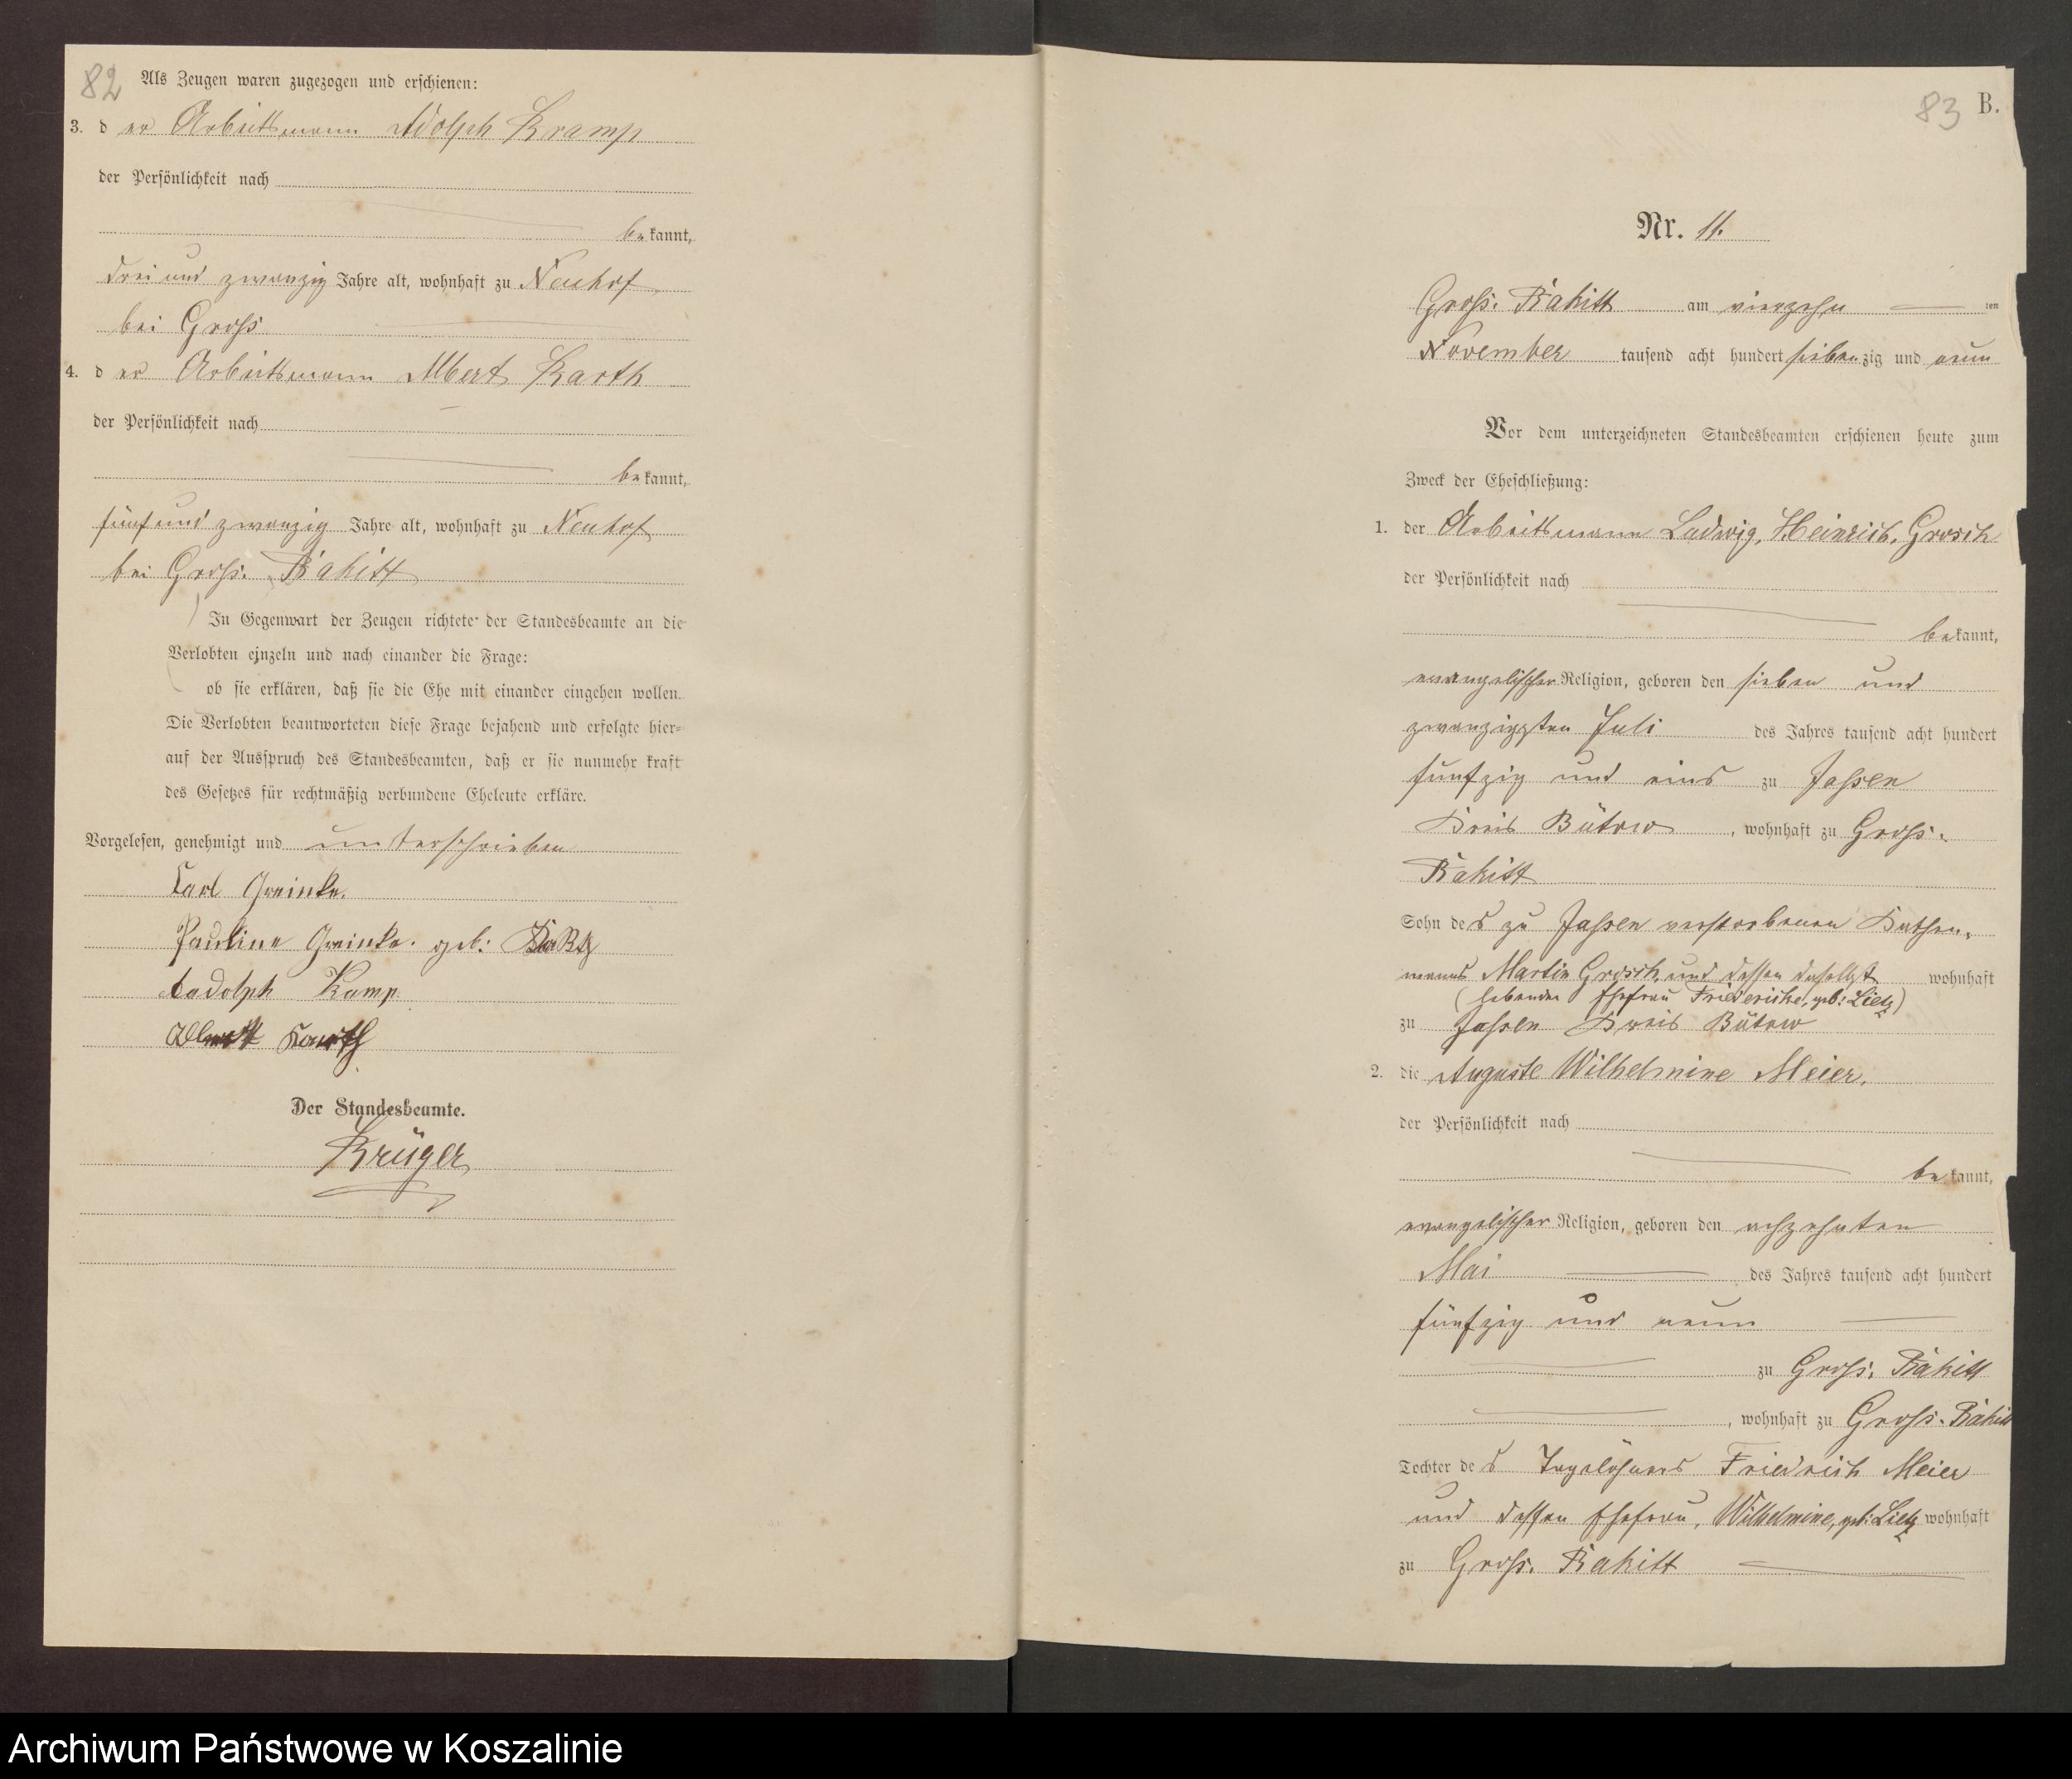 82
Als Zeugen waren zugezogen und erschienen:
3. der Arbeitsmann Adolph Kramp
der Persönlichkeit nach
bekannt,
drei und zwanzig Jahre alt, wohnhaft zu Neuhof
bei Gross
4. der Arbeitsmann Albert Karth
der Persönlichkeit nach
bekannt,
fünf und zwanzig Jahre alt, wohnhaft zu Neuhof
bei Gross. Rakitt
In Gegenwart der Zeugen richtete der Standesbeamte an die
Verlobten einzeln und nach einander die Frage:
ob sie erklären, daß sie die Ehe mit einander eingehen wollen.
Die Verlobten beantworteten diese Frage bejahend und erfolgte hier=
auf der Ausspruch des Standesbeamten, daß er sie nunmehr kraft
des Gesetzes für rechtmäßig verbundene Eheleute erkläre.
Vorgelesen, genehmigt und unterschrieben
Carl Greinke.
Pauline Greinke. geb:
Kamp
Karth
Der Standesbeamte.
Krüger
83 B.
Nr. 11.
Gross. Rakitt am vierzehn ten
November tausend acht hundert siebenzig und neun
Vor dem unterzeichneten Standesbeamten erschienen heute zum
Zweck der Eheschließung:
1. der Arbeitsmann Ludwig, Heinrich, Grosch
der Persönlichkeit nach
bekannt,
evangelischer Religion, geboren den sieben und
zwanzigsten Juli des Jahres tausend acht hundert
fünfzig und eins zu Jassen
Kreis Bütow, wohnhaft zu Gross.
Rakitt
Sohn des zu Jassen verstorbenen Kathen-
manns Martin Grosch, und dessen daselbst wohnhaft
(lebenden Ehefrau Friedericke, geb: Lietz)
zu Jassen Kreis Bütow
2. die Auguste Wilhelmine Meier,
der Persönlichkeit nach
bekannt,
evangelischer Religion, geboren den achzehnten
Mai des Jahres tausend acht hundert
fünfzig und neun
zu Gross. Rakitt
, wohnhaft zu Gross. Rakitt
Tochter des Tagelöhners Friedrich Meier
und dessen Ehefrau, Wilhelmine, geb: Lietz wohnhaft
zu Gross. Rakitt
Archiwum Państwowe w Koszalinie